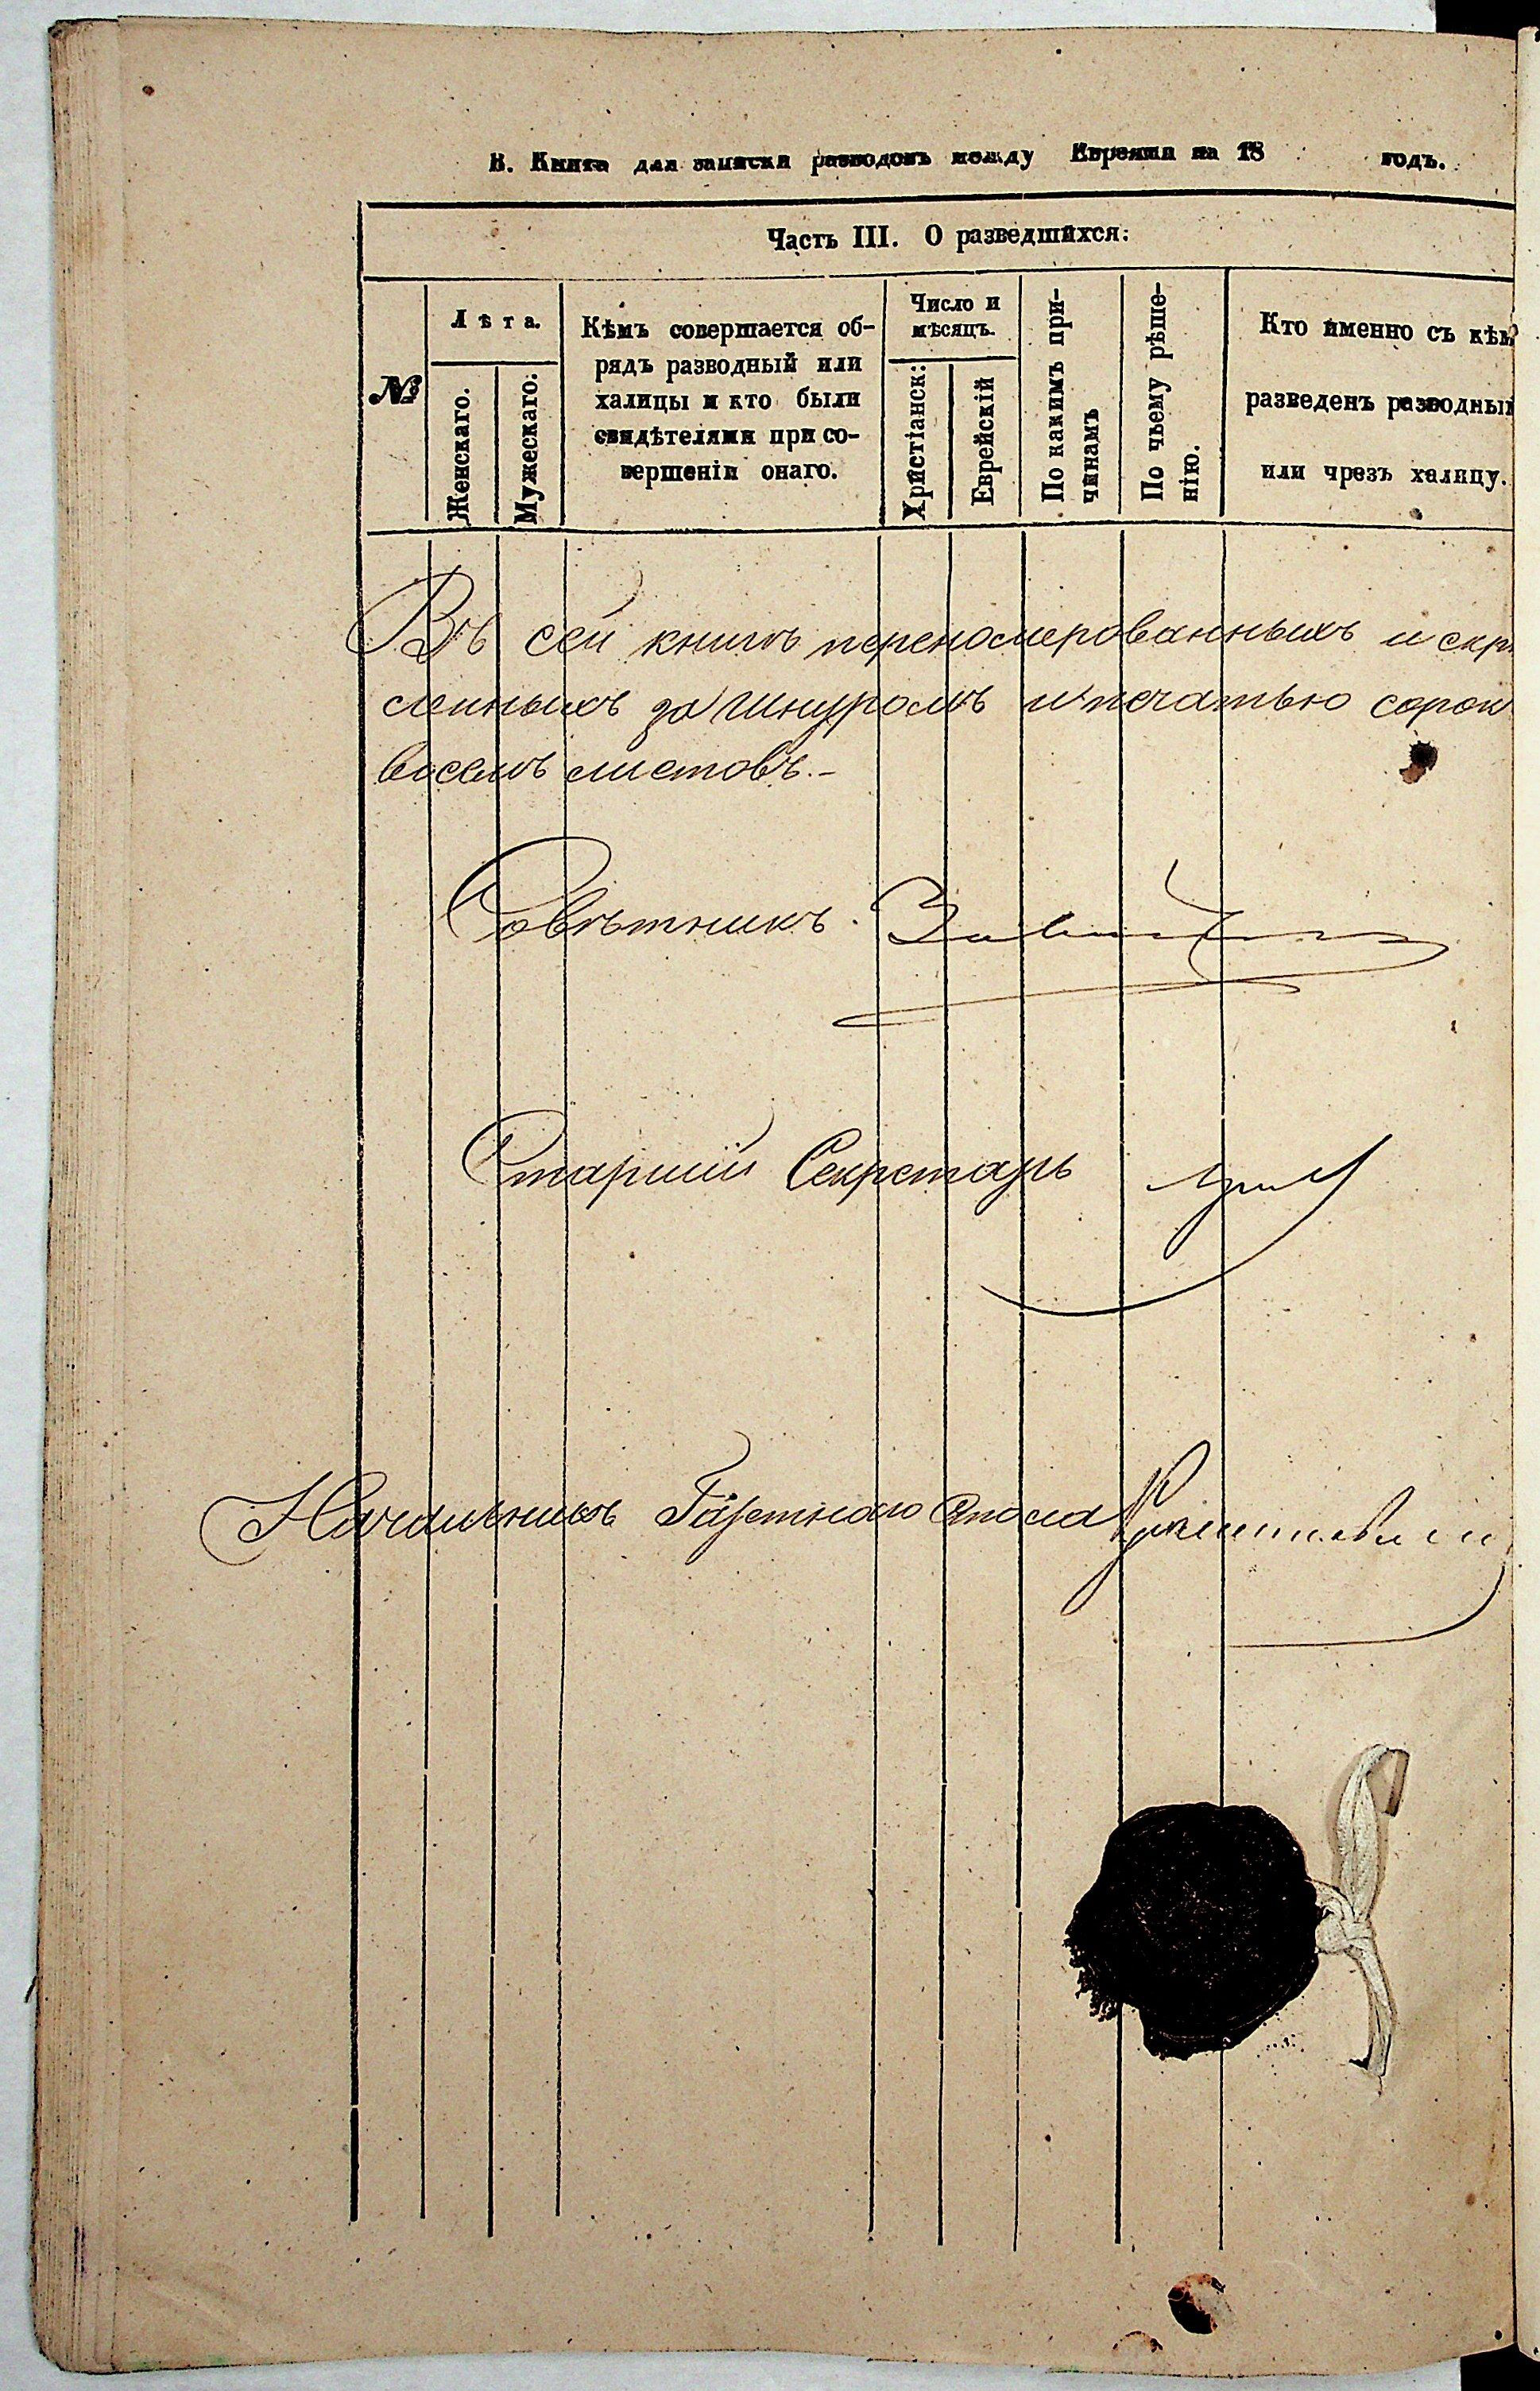 В. Книга для записки разводовъ между Евреями на 18 годъ.
Часть III. О разведшихся.
№
Лѣта.
Женскаго.
Мужескаго.
Кѣмъ совершается об-
рядъ разводный или
халицы и кто были
свидѣтелями при со-
вершеніи онаго.
Число и
мѣсяцъ.
Христіанск:
Еврейскій
По какимъ при-
чинамъ
По чьему рѣше-
нію.
Кто именно съ кѣм
разведенъ разводный
или чрезъ халицу.
Въ сей книгѣ перенумерованныхъ и скрѣ
пленныхъ за шнуромъ и печатью сорок
восемь листовъ.-
Совѣтникъ
Старшій Секретарь
Начальникъ Газетнаго Стола